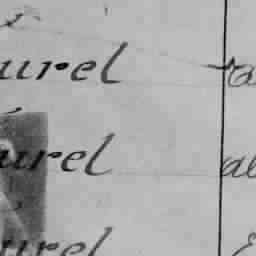 urel a
urel al
urel